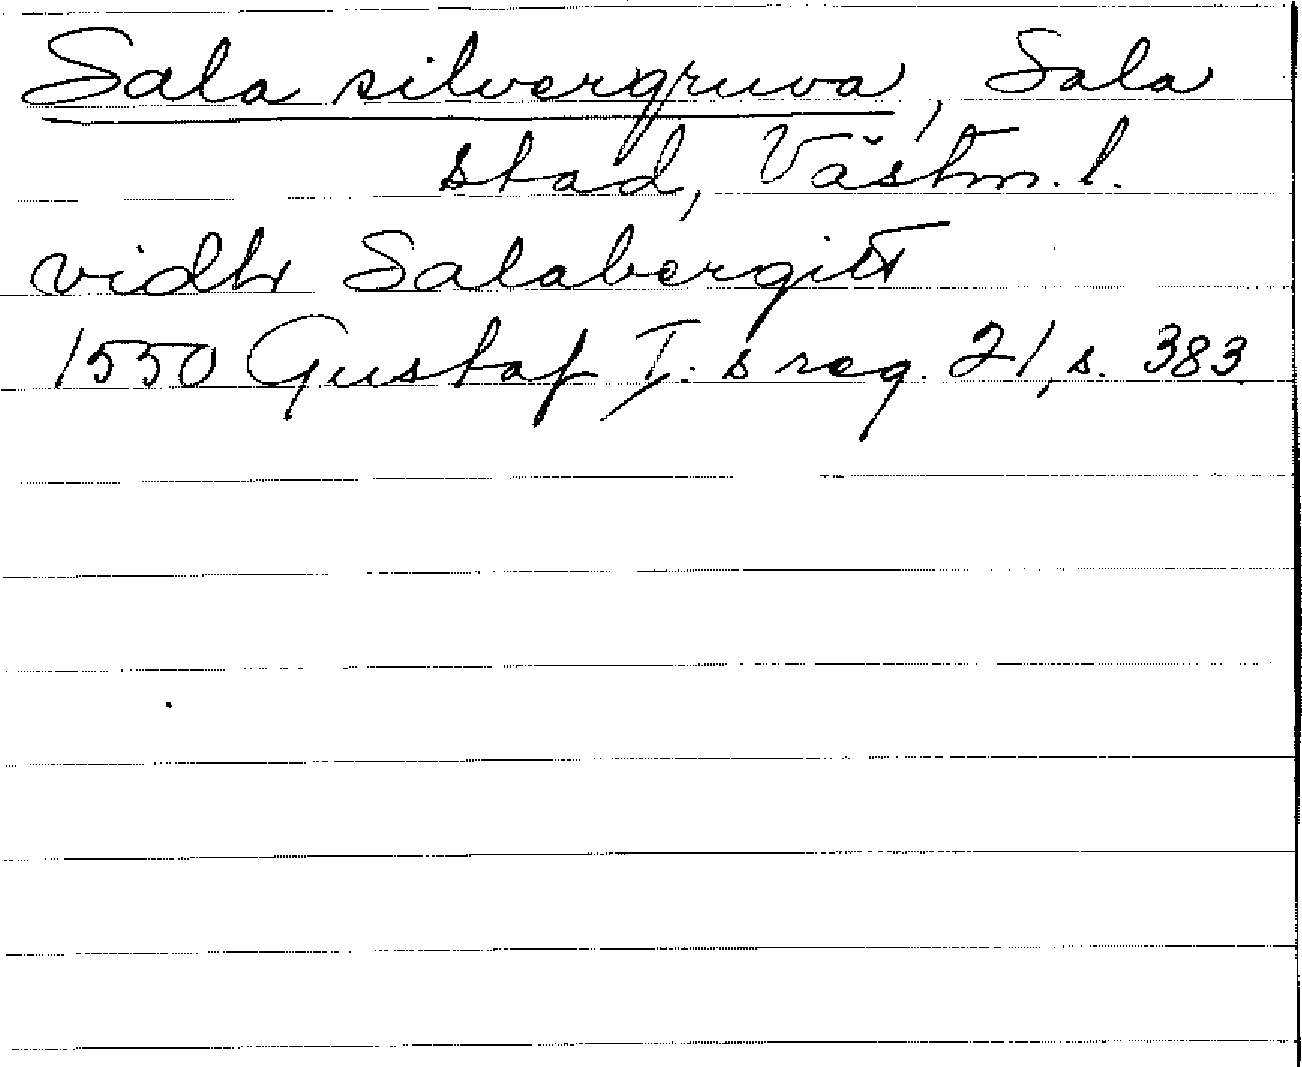 Sala silvergruva, Sala
stad, Västm. l.
vidh Salabergitt
1550 Gustaf I:s reg. 21, s. 383